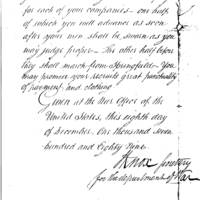 for each of your companies - one half
of which you will advance as soon
after your men shall be sworn as you
may judge proper - The other half before
they shall march from Springfield - You
may promise your recruits great punctuality
of payment, and clothing
Given at the War Office of the
United States, this eighth day
of december, One thousand seven
hundred and Eighty Nine
HKnox Secretary
for the department of War